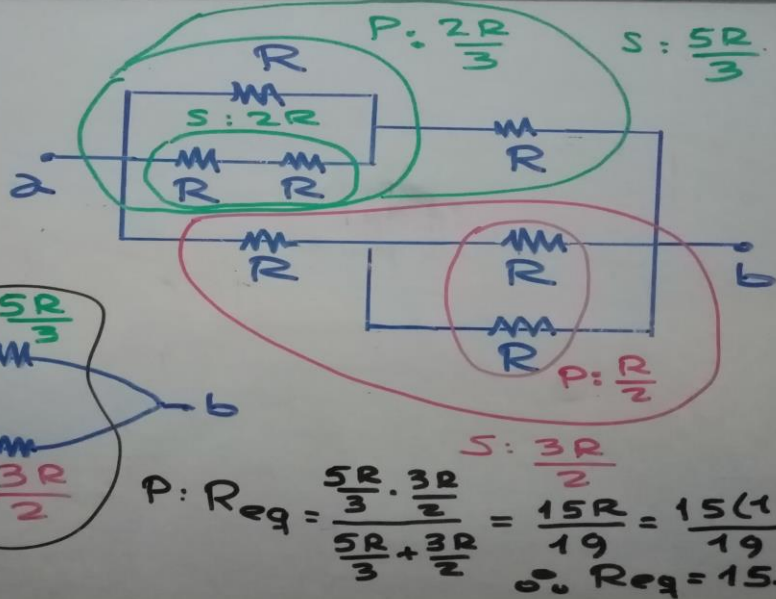 P: 2R/3
S: 5R/3
R
S: 2R
a
R R
R
R
R
b
R
P: R/2
5R/3
b
3R/2
S: 3R/2
P: Req = (5R/3 · 3R/2)/(5R/3 + 3R/2) = 15R/19 = 15(1/19
∴ Req = 15.